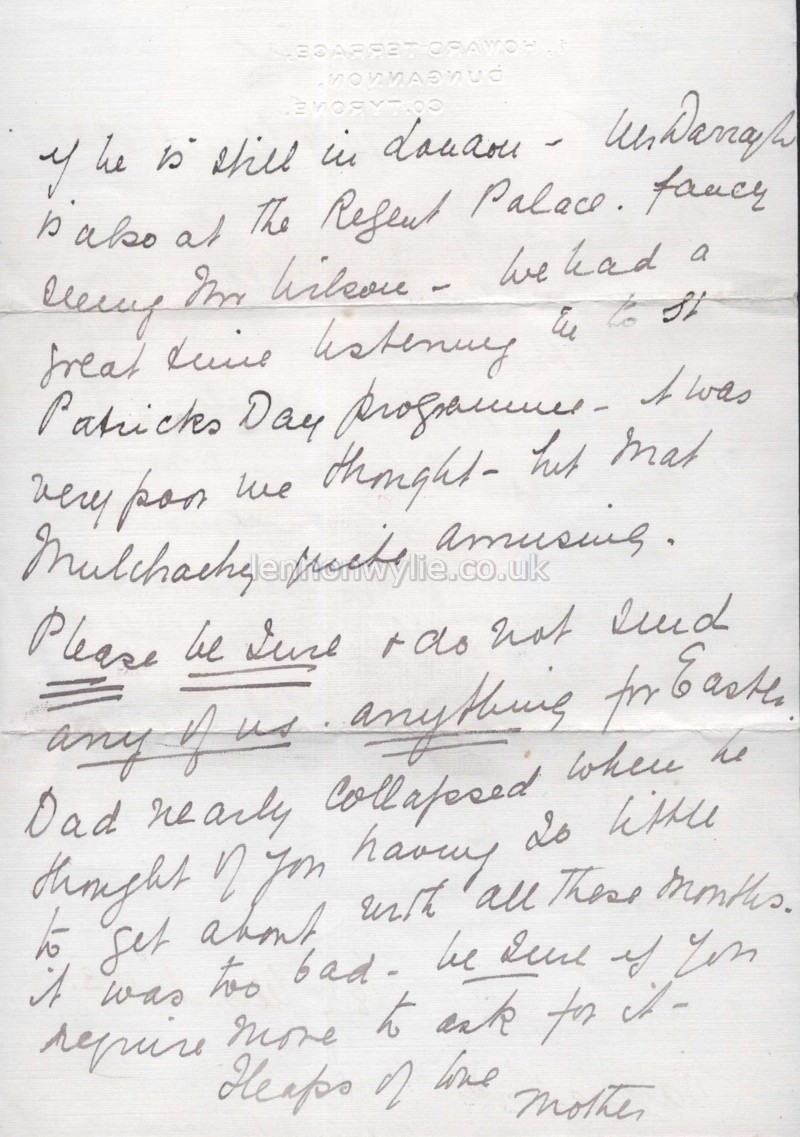 1. HOWARD TERRACE.
DUNGANNON.
CO. TYRONE.
if he is still in London - Mr Darragh
is also at the Regent Palace. fancy
seeing Mr Wilson - We had a
great time listening in to St
Patricks Day programme - it was
very poor we thought - but Mat
Mulchachy quite amusing.
Please be sure & do not send
any of us. anything for Easter.
Dad nearly collapsed when he
thought of you having so little
to get about with all these months.
it was too bad - be sure if you
require more to ask for it -
Heaps of love
Mother
lennonwylie.co.uk